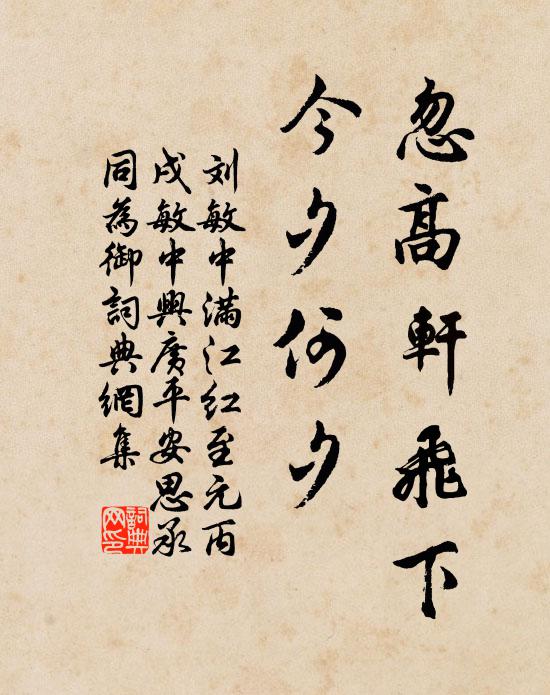 忽高軒飛下
今夕何夕
刘敏中满江红至元丙
戌敏中興廣平安思承
同為御詞典網集
詞典网印